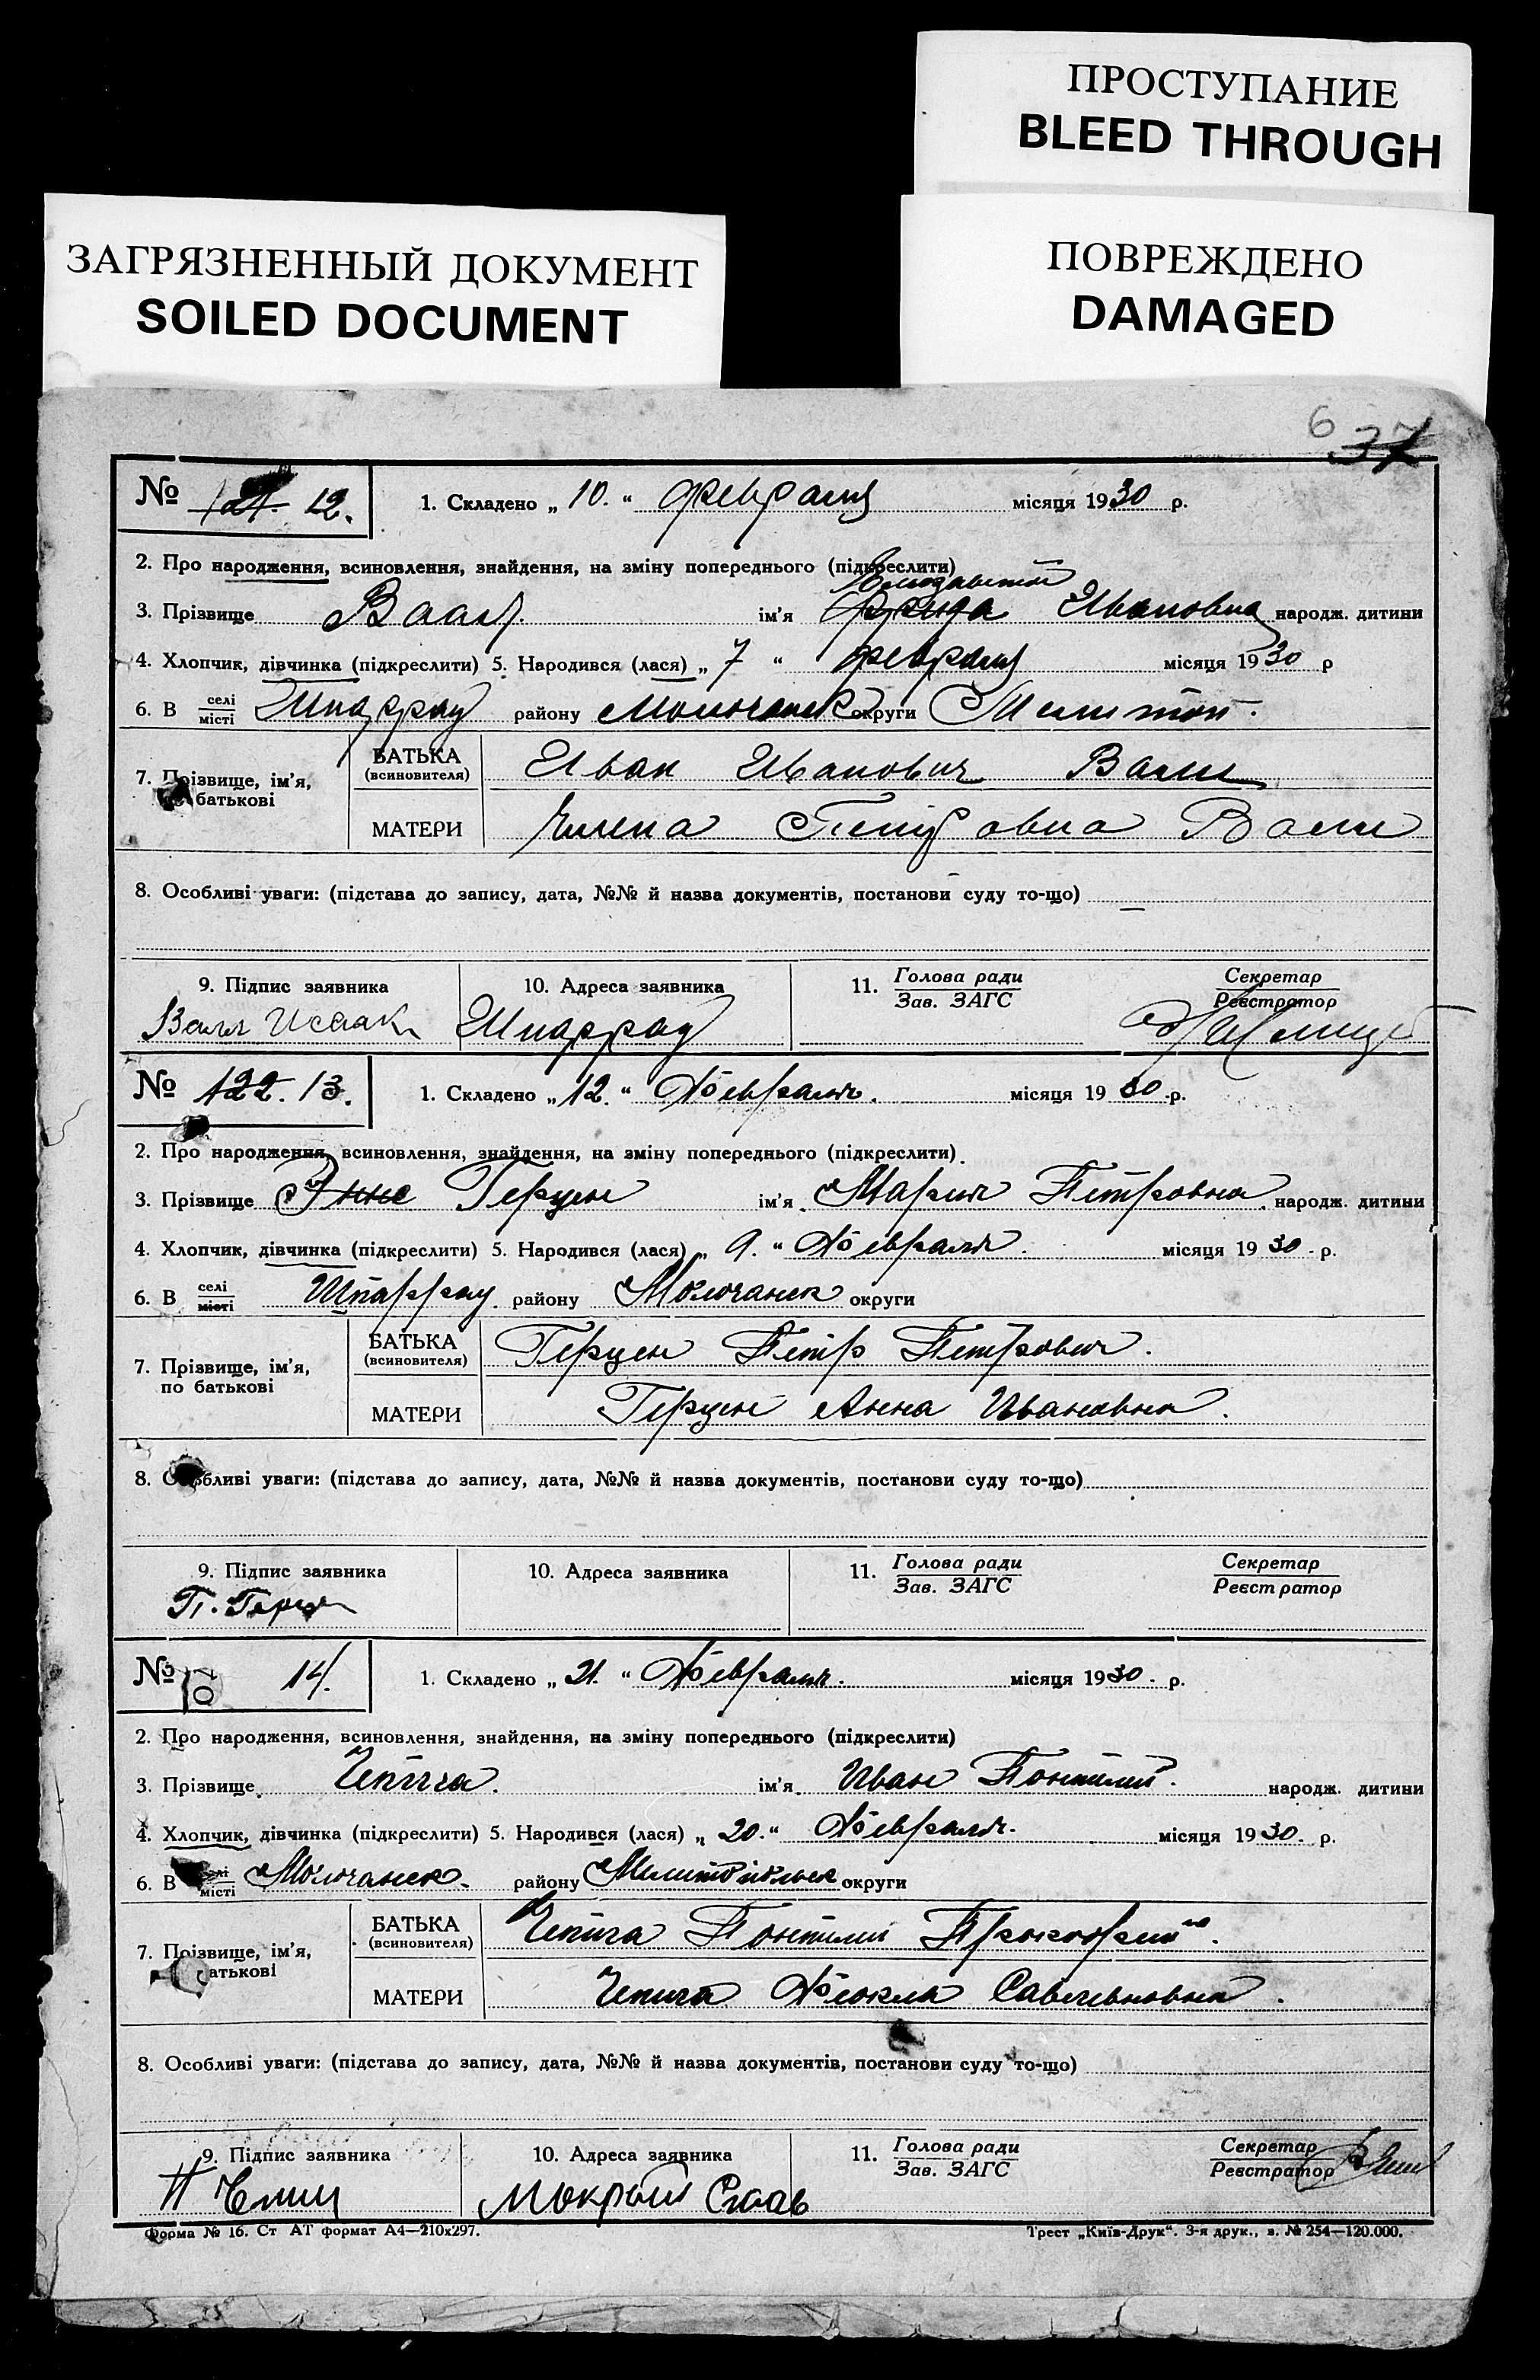 ПРОСТУПАНИЕ
BLEED THROUGH
ЗАГРЯЗНЕННЫЙ ДОКУМЕНТ
SOILED DOCUMENT
ПОВРЕЖДЕНО
DAMAGED
6 37
№ 121. 12. 1. Складено „ 10. “ февраля місяця 1930 р.
2. Про народження, всиновлення, знайдення, на зміну попереднього (підкреслити)
3. Прізвище Ваал ім'я Фрида Ивановна народж. дитини
4. Хлопчик, дівчинка (підкреслити) 5. Народився (лася) „ 7 “ февраля місяця 1930 р
6. В селі місті Шпаррау району Молочанск округи Мелитоп.
7. Прізвище, ім'я, по батькові
БАТЬКА (всиновителя) Иван Иванович Валл
МАТЕРИ Елена Петровна Валл
8. Особливі уваги: (підстава до запису, дата, №№ й назва документів, постанови суду то-що) —
9. Підпис заявника 10. Адреса заявника 11. Голова ради Зав. ЗАГС Секретар Реєстратор
Валл Исаак Шпаррау
№ 122. 13. 1. Складено „ 12. “ Февраля. місяця 1930 р.
2. Про народження, всиновлення, знайдення, на зміну попереднього (підкреслити)
3. Прізвище Герцен ім'я Мария Петровна народж. дитини
4. Хлопчик, дівчинка (підкреслити) 5. Народився (лася) „ 9. “ Февраля. місяця 1930 р.
6. В селі місті Шпаррау. району Молочанск округи
7. Прізвище, ім'я, по батькові
БАТЬКА (всиновителя) Герцен Петр Петрович.
МАТЕРИ Герцен Анна Ивановна.
8. Особливі уваги: (підстава до запису, дата, №№ й назва документів, постанови суду то-що)
9. Підпис заявника 10. Адреса заявника 11. Голова ради Зав. ЗАГС Секретар Реєстратор
П. Герцен
№ 14. 1. Складено „ 21. “ Февраля. місяця 1930 р.
2. Про народження, всиновлення, знайдення, на зміну попереднього (підкреслити)
3. Прізвище Чепига. ім'я Иван Понтилий. народж. дитини
4. Хлопчик, дівчинка (підкреслити) 5. Народився (лася) „ 20. “ Февраля. місяця 1930 р.
6. В селі місті Молочанск. району округи
7. Прізвище, ім'я, по батькові
БАТЬКА (всиновителя) Чепига Понтилий
МАТЕРИ Чепига Фекла
8. Особливі уваги: (підстава до запису, дата, №№ й назва документів, постанови суду то-що)
9. Підпис заявника 10. Адреса заявника 11. Голова ради Зав. ЗАГС Секретар Реєстратор
Форма № 16. Ст АТ формат А4—210х297. Трест „Київ-Друк“. 3-я друк., з. № 254—120.000.